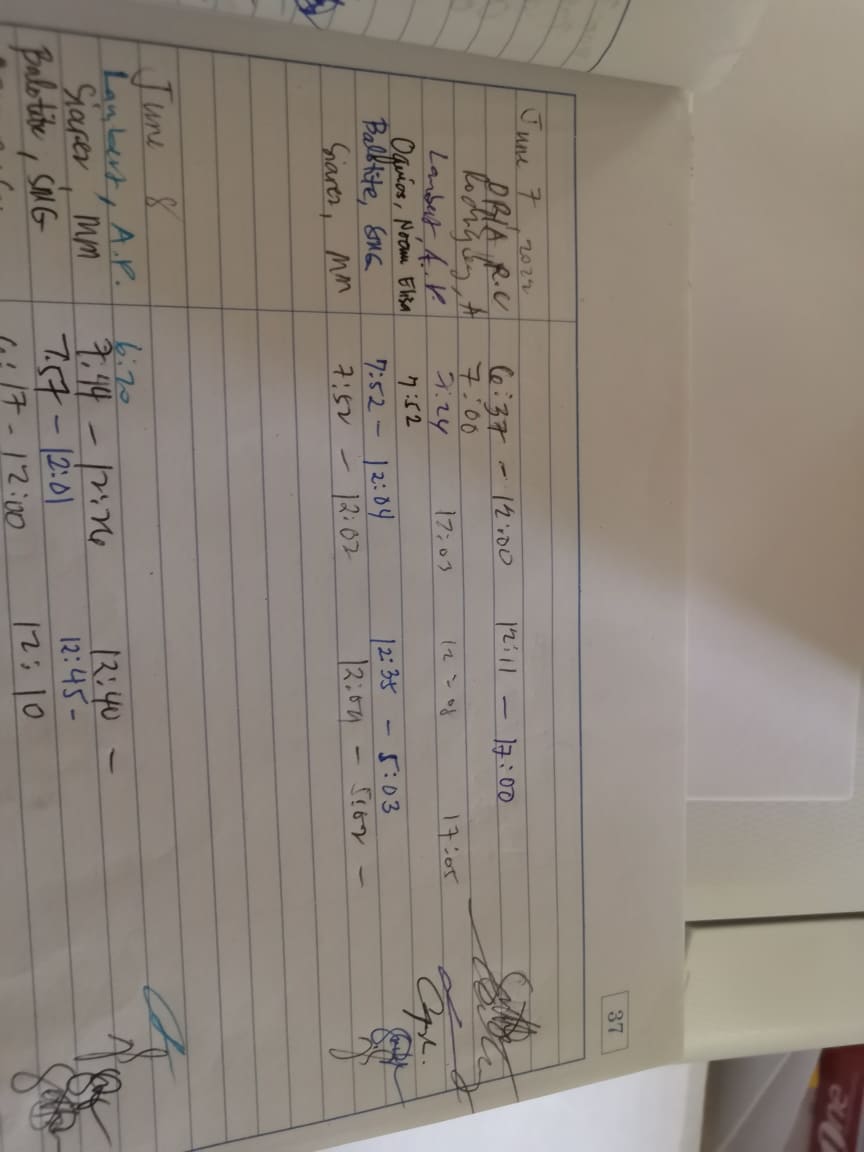 37
June 7, 2024
R.C 6:37 - 12:00 12:11 - 17:00
A 7:00
Lambert, A.P. 7:24 12:03 12:08 17:05
Noreen Eliza 7:52
Balotite, SMG 7:52 - 12:04 12:35 - 5:03
Siarez, MM 7:52 - 12:02 12:04 - 5:02 -
June 8
Lambert, A.P. 6:20
Siarez, MM 7:44 - 12:26 12:40 -
Balotite, SMG 7:57 - 12:01 12:45 -
17 - 12:00 12:10